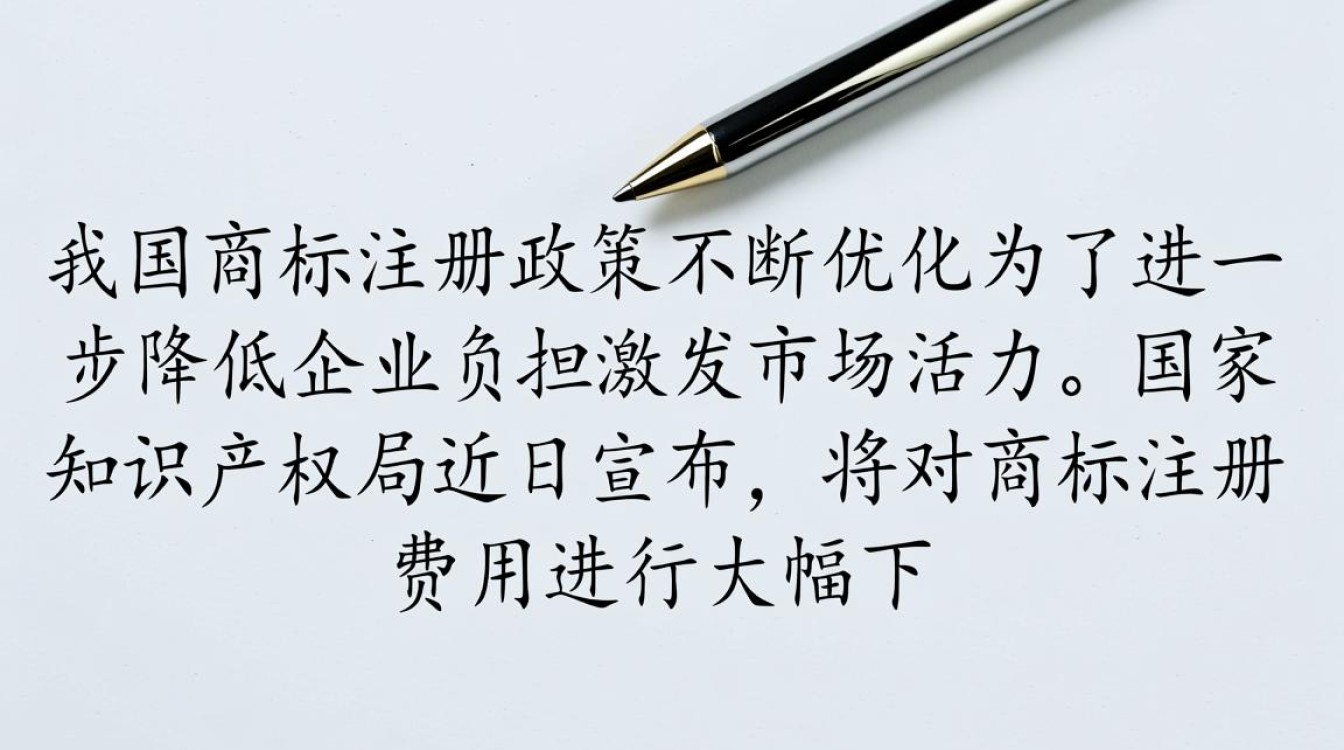 我国商标注册政策不断优化为了进一
步降低企业负担激发市场活力。国家
知识产权局近日宣布，将对商标注册
费用进行大幅下